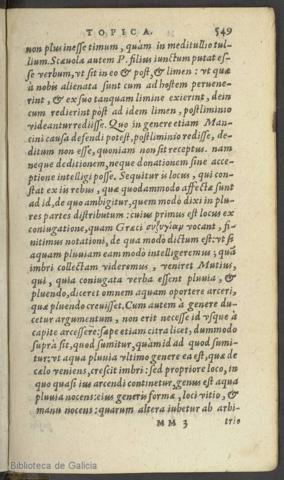 TOPICA. 549
non plus inesse timum, quàm in meditullio tul-
lium. Scæuola autem P. filius iunctum putat es-
se verbum, vt sit in eo & post, & limen : vt quæ
à nobis alienata sunt cum ad hostem peruene-
rint, & ex suo tanquam limine exierint, dein
cum redierint post ad idem limen, postliminio
videantur rediisse. Quo in genere etiam Man-
cini causa defendi potest, postliminio redisse, de-
ditum non esse, quoniam non sit receptus. nam
neque deditionem, neque donationem sine acce-
ptione intelligi posse. Sequitur is locus, qui con-
stat ex iis rebus, quæ quodammodo affectæ sunt
ad id, de quo ambigitur, quem modò dixi in plu-
res partes distributum : cuius primus est locus ex
coniugatione, quam Græci συζυγίαν vocant, fi-
nitimus notationi, de qua modò dictum est: vt si
aquam pluuiam eam modò intelligeremus, quā
imbri collectam videremus, veniret Mutius,
qui, quia coniugata verba essent pluuia, &
pluendo, diceret omnem aquam oportere arceri,
quæ pluendo creuisset. Cum autem à genere du-
cetur argumentum, non erit necesse id vsque à
capite arcessere: sæpe etiam citra licet, dummodo
suprà sit, quod sumitur, quàm id ad quod sumi-
tur: vt aqua pluuia vltimo genere ea est, quæ de
cælo veniens, crescit imbri : sed propriore loco, in
quo quasi ius arcendi continetur, genus est aqua
pluuia nocens: eius generis formæ, loci vitio, &
manu nocens : quarum altera iubetur ab arbi-
MM 3 trio
Biblioteca de Galicia